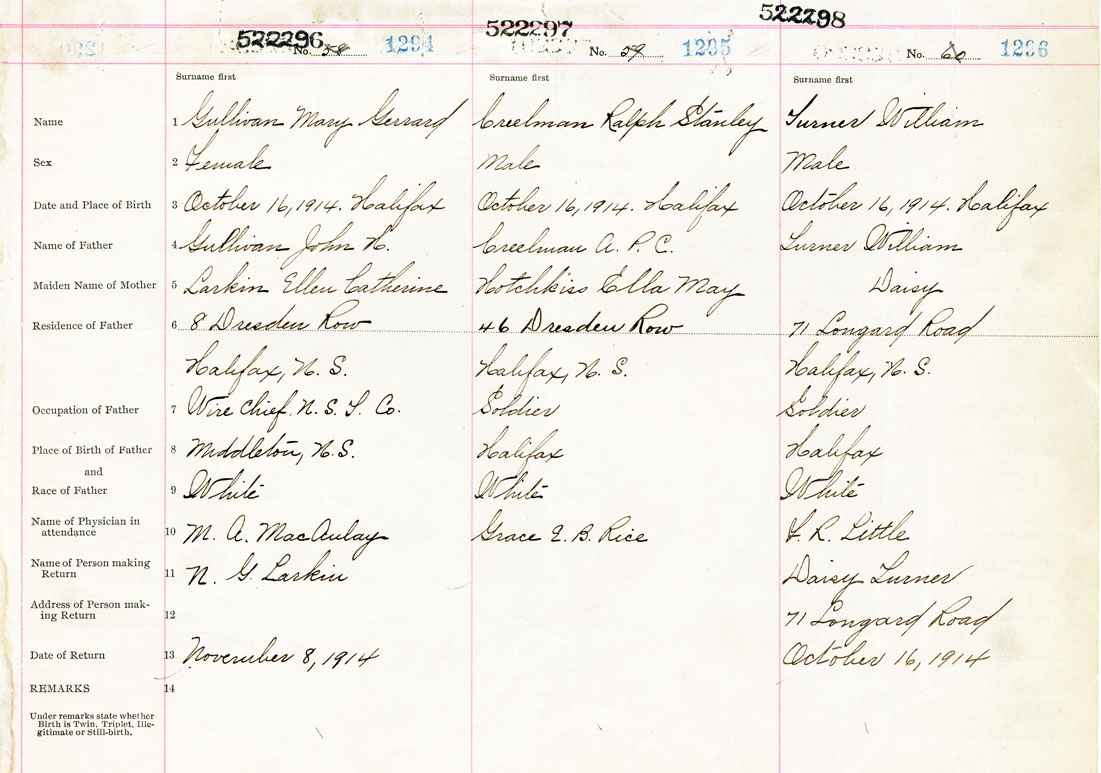 522296 522297 522298
No. 58 1294 No. 59 1295 No. 60 1296
Surname first Surname first Surname first
Name 1 Sullivan Mary Gerrard Creelman Ralph Stanley Turner William
Sex 2 Female Male Male
Date and Place of Birth 3 October 16, 1914. Halifax October 16, 1914. Halifax October 16, 1914. Halifax
Name of Father 4 Sullivan John H. Creelman A. P. C. Turner William
Maiden Name of Mother 5 Larkin Ellen Catherine Hotchkiss Ella May Daisy
Residence of Father 6 8 Dresden Row 46 Dresden Row 71 Longard Road
Halifax, N. S. Halifax, N. S. Halifax, N. S.
Occupation of Father 7 Wire Chief, N. S. T. Co. Soldier Soldier
Place of Birth of Father 8 Middleton, N. S. Halifax Halifax
and
Race of Father 9 White White White
Name of Physician in
attendance 10 M. A. MacAulay Grace E. B. Rice F. R. Little
Name of Person making
Return 11 N. G. Larkin Daisy Turner
Address of Person mak-
ing Return 12 71 Longard Road
Date of Return 13 November 8, 1914 October 16, 1914
REMARKS 14
Under remarks state whether
Birth is Twin, Triplet, Ille-
gitimate or Still-birth.